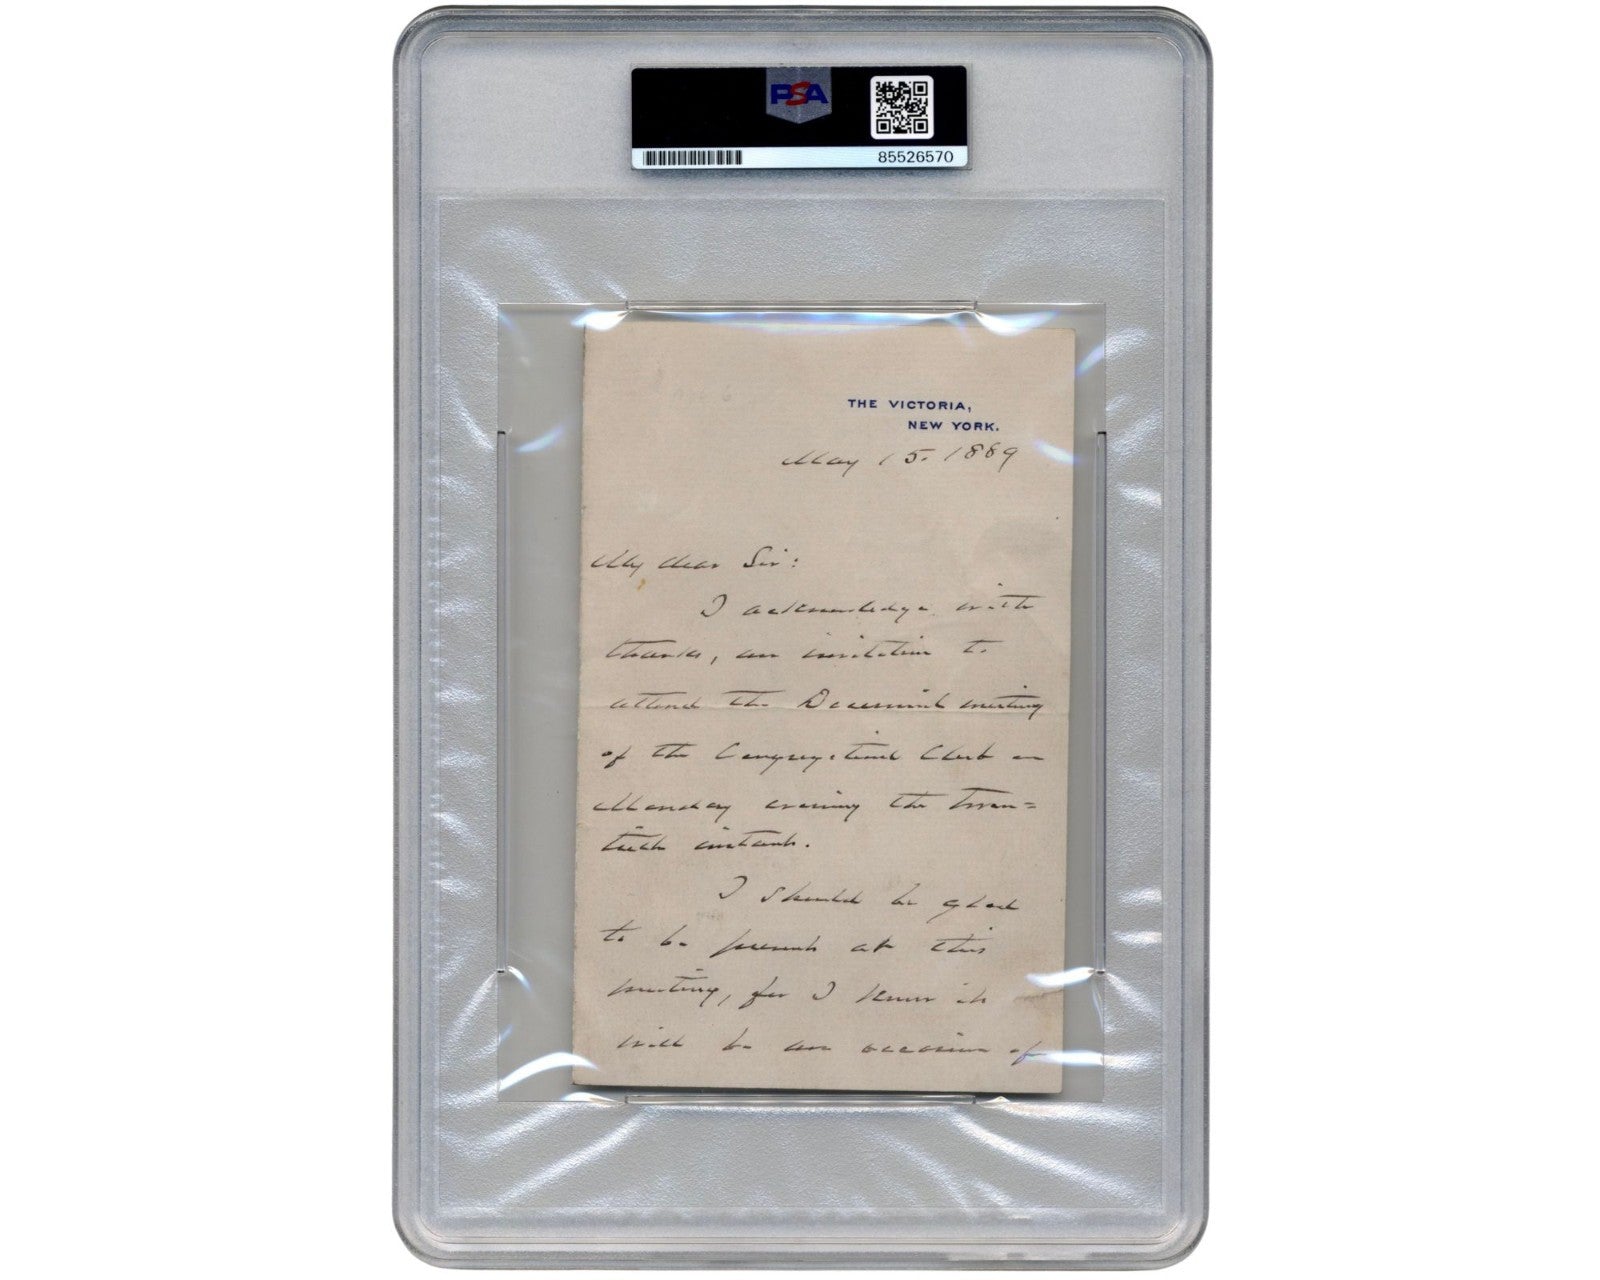 PSA
85526570
THE VICTORIA,
NEW YORK.
May 15. 1889
My dear Sir:
I acknowledge with
thanks, an invitation to
attend the Decennial meeting
of the Congregational Club on
Monday evening the twen=
tieth instant.
I should be glad
to be present at this
meeting, for I know it
will be an occasion of